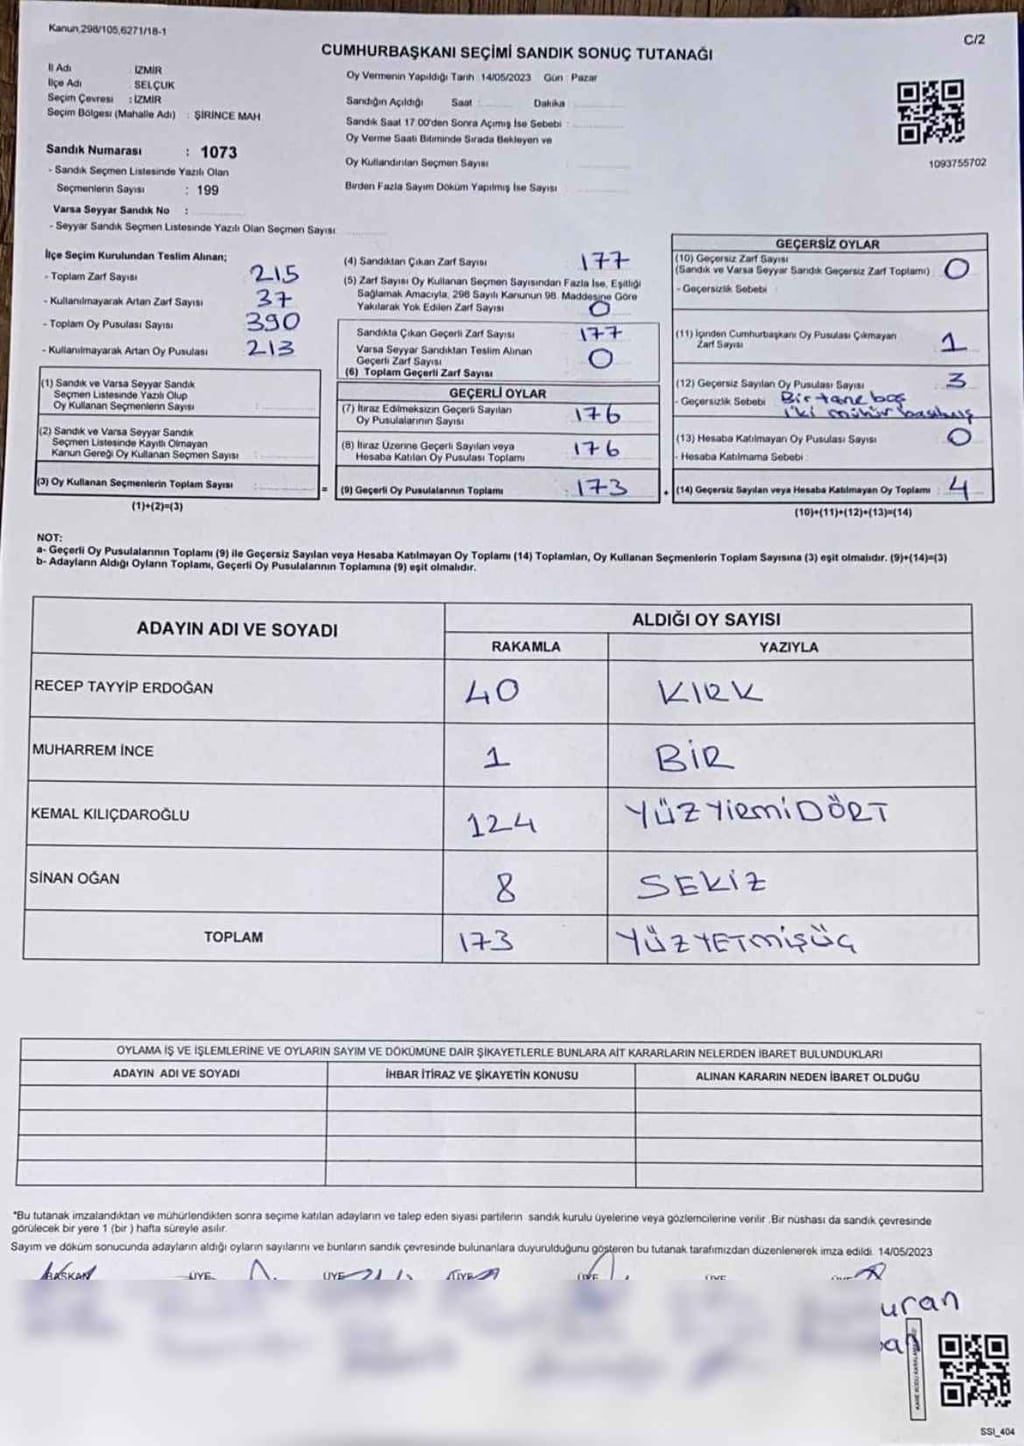 Kanun,298/105,6271/18-1
C/2
CUMHURBAŞKANI SEÇİMİ SANDIK SONUÇ TUTANAĞI
İl Adı : İZMİR
İlçe Adı : SELÇUK
Seçim Çevresi : İZMİR
Seçim Bölgesi (Mahalle Adı) : ŞİRİNCE MAH.
Sandık Numarası : 1073
- Sandık Seçmen Listesinde Yazılı Olan
Seçmenlerin Sayısı : 199
Varsa Seyyar Sandık No :
- Seyyar Sandık Seçmen Listesinde Yazılı Olan Seçmen Sayısı:
Oy Vermenin Yapıldığı Tarih :14/05/2023 Gün : Pazar
Sandığın Açıldığı Saat : Dakika :
Sandık Saat 17:00'den Sonra Açılmış İse Sebebi :
Oy Verme Saati Bitiminde Sırada Bekleyen ve
Oy Kullandırılan Seçmen Sayısı :
Birden Fazla Sayım Döküm Yapılmış İse Sayısı :
1093755702
İlçe Seçim Kurulundan Teslim Alınan;
- Toplam Zarf Sayısı : 215
- Kullanılmayarak Artan Zarf Sayısı : 37
- Toplam Oy Pusulası Sayısı : 390
- Kullanılmayarak Artan Oy Pusulası : 213
(1) Sandık ve Varsa Seyyar Sandık
Seçmen Listesinde Yazılı Olup
Oy Kullanan Seçmenlerin Sayısı :
(2) Sandık ve Varsa Seyyar Sandık
Seçmen Listesinde Kayıtlı Olmayan
Kanun Gereği Oy Kullanan Seçmen Sayısı :
(3) Oy Kullanan Seçmenlerin Toplam Sayısı :
(1)+(2)=(3)
(4) Sandıktan Çıkan Zarf Sayısı : 177
(5) Zarf Sayısı Oy Kullanan Seçmen Sayısından Fazla İse, Eşitliği
Sağlamak Amacıyla, 298 Sayılı Kanunun 98. Maddesine Göre
Yakılarak Yok Edilen Zarf Sayısı : 0
Sandıkta Çıkan Geçerli Zarf Sayısı : 177
Varsa Seyyar Sandıktan Teslim Alınan
Geçerli Zarf Sayısı : 0
(6) Toplam Geçerli Zarf Sayısı :
GEÇERLİ OYLAR
(7) İtiraz Edilmeksizin Geçerli Sayılan
Oy Pusulalarının Sayısı : 176
(8) İtiraz Üzerine Geçerli Sayılan veya
Hesaba Katılan Oy Pusulası Toplamı : 176
= (9) Geçerli Oy Pusulalarının Toplamı : 173
GEÇERSİZ OYLAR
(10) Geçersiz Zarf Sayısı
(Sandık ve Varsa Seyyar Sandık Geçersiz Zarf Toplamı) : 0
- Geçersizlik Sebebi :
(11) İçinden Cumhurbaşkanı Oy Pusulası Çıkmayan
Zarf Sayısı : 1
(12) Geçersiz Sayılan Oy Pusulası Sayısı : 3
- Geçersizlik Sebebi : Bir tane boş
iki mühür basılmış
(13) Hesaba Katılmayan Oy Pusulası Sayısı : 0
- Hesaba Katılmama Sebebi :
+ (14) Geçersiz Sayılan veya Hesaba Katılmayan Oy Toplamı : 4
(10)+(11)+(12)+(13)=(14)
NOT:
a- Geçerli Oy Pusulalarının Toplamı (9) ile Geçersiz Sayılan veya Hesaba Katılmayan Oy Toplamı (14) Toplamları, Oy Kullanan Seçmenlerin Toplam Sayısına (3) eşit olmalıdır. (9)+(14)=(3)
b- Adayların Aldığı Oyların Toplamı, Geçerli Oy Pusulalarının Toplamına (9) eşit olmalıdır.
ADAYIN ADI VE SOYADI
ALDIĞI OY SAYISI
RAKAMLA YAZIYLA
RECEP TAYYİP ERDOĞAN 40 KIRK
MUHARREM İNCE 1 BİR
KEMAL KILIÇDAROĞLU 124 YÜZYİRMİDÖRT
SİNAN OĞAN 8 SEKİZ
TOPLAM 173 YÜZYETMİŞÜÇ
OYLAMA İŞ VE İŞLEMLERİNE VE OYLARIN SAYIM VE DÖKÜMÜNE DAİR ŞİKAYETLERLE BUNLARA AİT KARARLARIN NELERDEN İBARET BULUNDUKLARI
ADAYIN ADI VE SOYADI İHBAR İTİRAZ VE ŞİKAYETİN KONUSU ALINAN KARARIN NEDEN İBARET OLDUĞU
*Bu tutanak imzalandıktan ve mühürlendikten sonra seçime katılan adayların ve talep eden siyasi partilerin sandık kurulu üyelerine veya gözlemcilerine verilir .Bir nüshası da sandık çevresinde
görülecek bir yere 1 (bir ) hafta süreyle asılır.
Sayım ve döküm sonucunda adayların aldığı oyların sayılarını ve bunların sandık çevresinde bulunanlara duyurulduğunu gösteren bu tutanak tarafımızdan düzenlenerek imza edildi. 14/05/2023
BAŞKAN ÜYE ÜYE ÜYE ÜYE ÜYE
uran
SSI_404